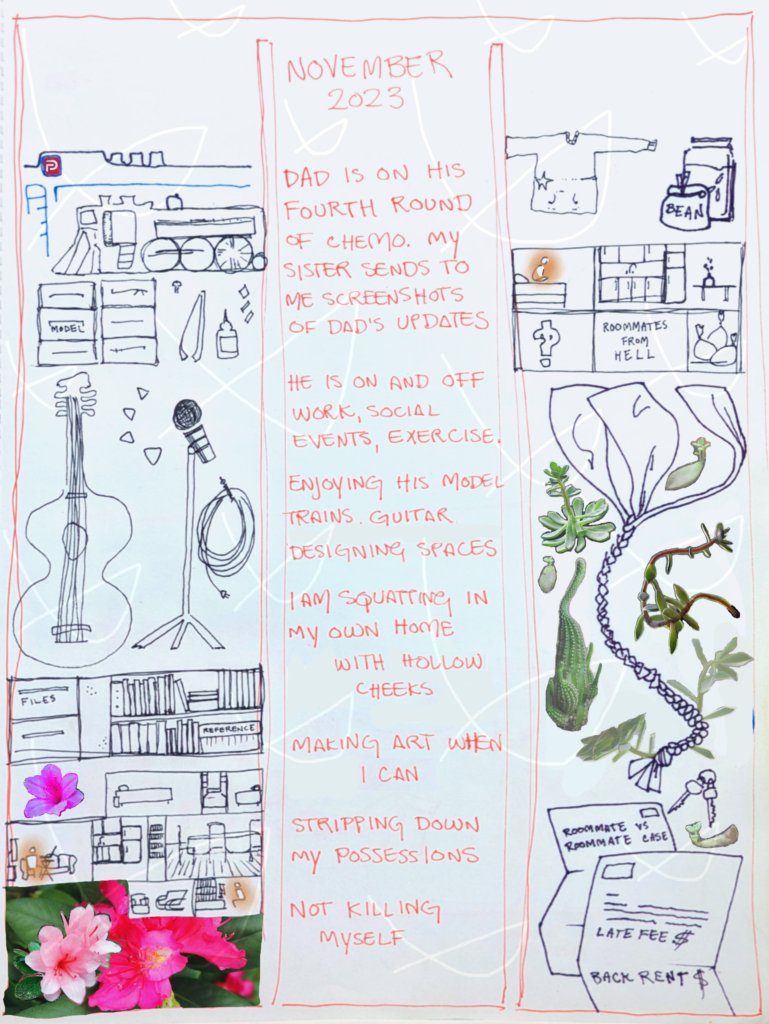 NOVEMBER
2023
DAD IS ON HIS
FOURTH ROUND
OF CHEMO. MY
SISTER SENDS TO
ME SCREENSHOTS
OF DAD'S UPDATES
HE IS ON AND OFF
WORK, SOCIAL
EVENTS, EXERCISE.
ENJOYING HIS MODEL
TRAINS. GUITAR.
DESIGNING SPACES
I AM SQUATTING IN
MY OWN HOME
WITH HOLLOW
CHEEKS
MAKING ART WHEN
I CAN
STRIPPING DOWN
MY POSSESSIONS
NOT KILLING
MYSELF
P
MODEL
FILES
REFERENCE
BEAN
ROOMMATES
FROM
HELL
ROOMMATE VS
ROOMMATE CASE
LATE FEE $
BACK RENT $